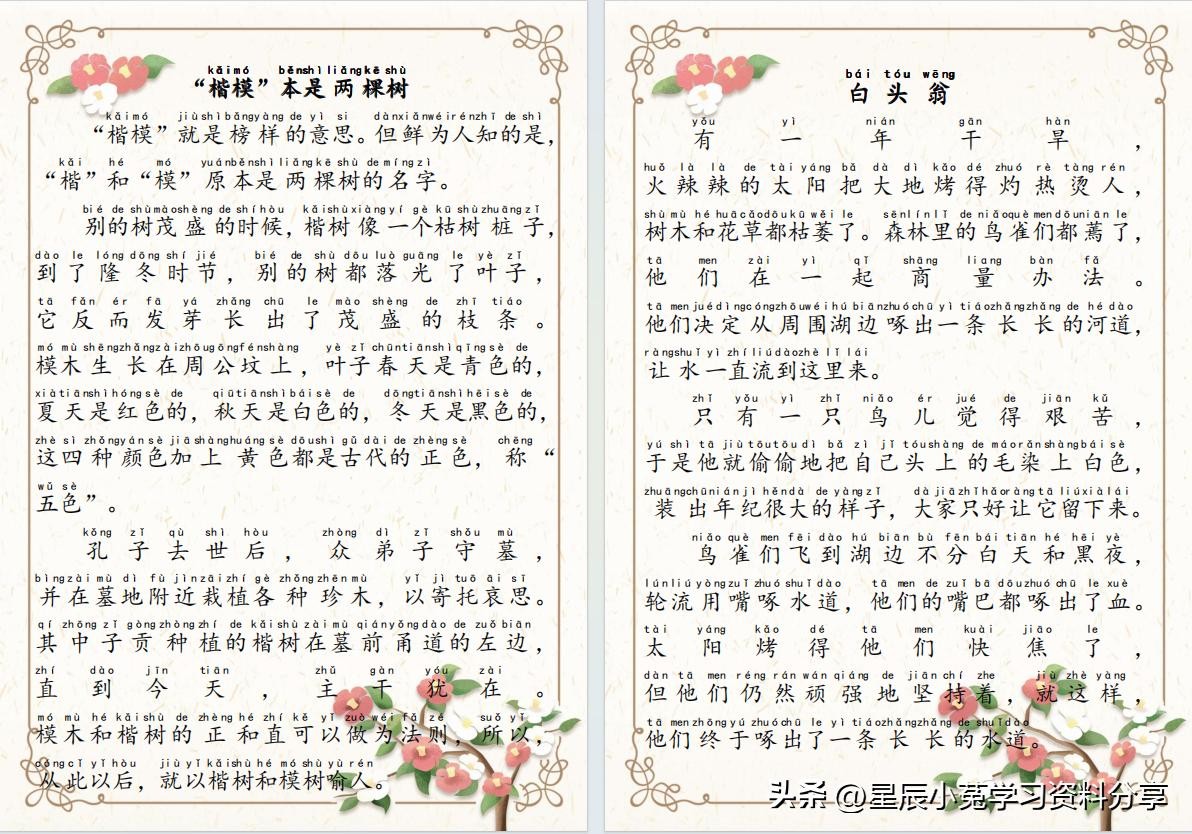 kǎi mó běn shì liǎng kē shù
“楷模”本是两棵树
kǎi mó jiù shì bǎng yàng de yì si dàn xiǎn wéi rén zhī de shì
“楷模”就是榜样的意思。但鲜为人知的是，
kǎi hé mó yuán běn shì liǎng kē shù de míng zì
“楷”和“模”原本是两棵树的名字。
bié de shù mào shèng de shí hòu kǎi shù xiàng yí gè kū shù zhuāng zǐ
别的树茂盛的时候，楷树像一个枯树桩子，
dào le lóng dōng shí jié bié de shù dōu luò guāng le yè zǐ
到了隆冬时节，别的树都落光了叶子，
tā fǎn ér fā yá zhǎng chū le mào shèng de zhī tiáo
它反而发芽长出了茂盛的枝条。
mó mù shēng zhǎng zài zhōu gōng fén shàng yè zǐ chūn tiān shì qīng sè de
模木生长在周公坟上，叶子春天是青色的，
xià tiān shì hóng sè de qiū tiān shì bái sè de dōng tiān shì hēi sè de
夏天是红色的，秋天是白色的，冬天是黑色的，
zhè sì zhǒng yán sè jiā shàng huáng sè dōu shì gǔ dài de zhèng sè chēng
这四种颜色加上黄色都是古代的正色，称“
wǔ sè
五色”。
kǒng zǐ qù shì hòu zhòng dì zǐ shǒu mù
孔子去世后，众弟子守墓，
bìng zài mù dì fù jìn zāi zhí gè zhǒng zhēn mù yǐ jì tuō āi sī
并在墓地附近栽植各种珍木，以寄托哀思。
qí zhōng zǐ gòng zhòng zhí de kǎi shù zài mù qián yǒng dào de zuǒ biān
其中子贡种植的楷树在墓前甬道的左边，
zhí dào jīn tiān zhǔ gàn yóu zài
直到今天，主干犹在。
mó mù hé kǎi shù de zhèng hé zhí kě yǐ zuò wéi fǎ zé suǒ yǐ
模木和楷树的正和直可以做为法则，所以，
cóng cǐ yǐ hòu jiù yǐ kǎi shù hé mó shù yù rén
从此以后，就以楷树和模树喻人。
bái tóu wēng
白头翁
yǒu yì nián gān hàn
有一年干旱，
huǒ là là de tài yáng bǎ dà dì kǎo dé zhuó rè tàng rén
火辣辣的太阳把大地烤得灼热烫人，
shù mù hé huā cǎo dōu kū wěi le sēn lín lǐ de niǎo què men dōu niān le
树木和花草都枯萎了。森林里的鸟雀们都蔫了，
tā men zài yì qǐ shāng liang bàn fǎ
他们在一起商量办法。
tā men jué dìng cóng zhōu wéi hú biān zhuó chū yì tiáo zhǎng zhǎng de hé dào
他们决定从周围湖边啄出一条长长的河道，
ràng shuǐ yì zhí liú dào zhè lǐ lái
让水一直流到这里来。
zhǐ yǒu yì zhī niǎo ér jué de jiān kǔ
只有一只鸟儿觉得艰苦，
yú shì tā jiù tōu tōu dì bǎ zì jǐ tóu shàng de máo rǎn shàng bái sè
于是他就偷偷地把自己头上的毛染上白色，
zhuāng chū nián jì hěn dà de yàng zǐ dà jiā zhǐ hǎo ràng tā liú xià lái
装出年纪很大的样子，大家只好让它留下来。
niǎo què men fēi dào hú biān bù fēn bái tiān hé hēi yè
鸟雀们飞到湖边不分白天和黑夜，
lún liú yòng zuǐ zhuó shuǐ dào tā men de zuǐ bā dōu zhuó chū le xuè
轮流用嘴啄水道，他们的嘴巴都啄出了血。
tài yáng kǎo dé tā men kuài jiāo le
太阳烤得他们快焦了，
dàn tā men réng rán wán qiáng de jiān chí zhe jiù zhè yàng
但他们仍然顽强地坚持着，就这样，
tā men zhōng yú zhuó chū le yì tiáo zhǎng zhǎng de shuǐ dào
他们终于啄出了一条长长的水道。
头条 @星辰小菟学习资料分享